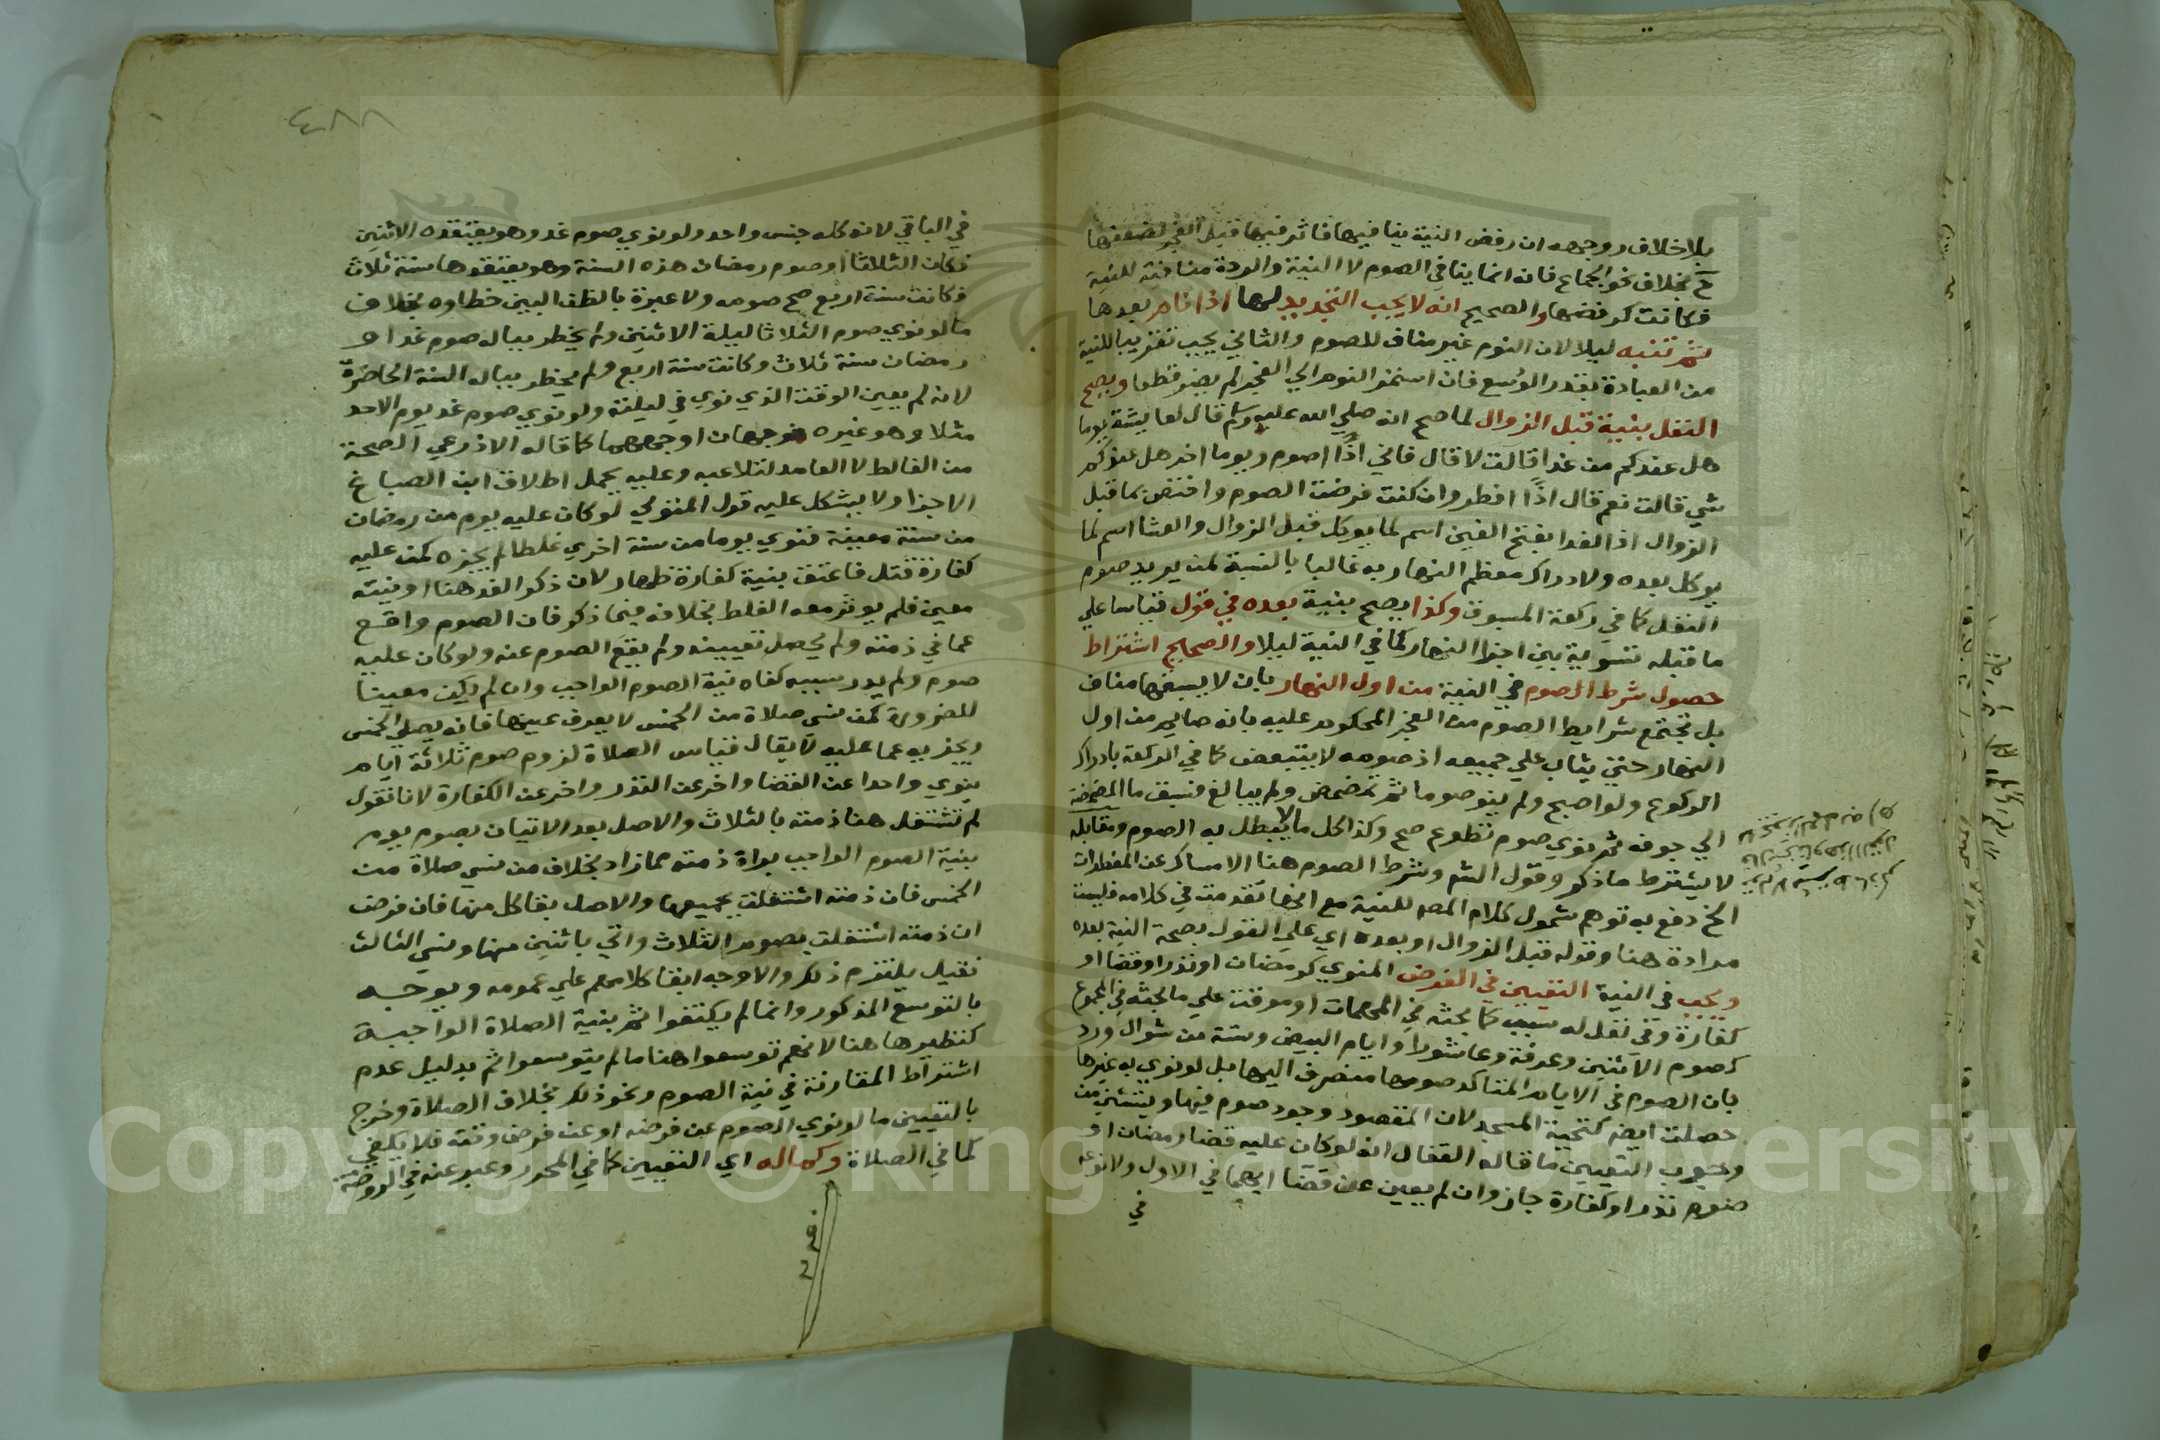 بلا خلاف ووجهه ان رفض النية ينافيها فاثر فيها قبل الفجر لضعفها
ح بخلاف نحو الجماع فانه انما ينافي الصوم لا النية والردة منافية للنية
فكانت كرفضها والصحيح انه لا يجب التجديد لها اذا نام بعدها
ثم تنبه ليلا لان النوم غير مناف للصوم والثاني يجب تقريبا للنية
من العبادة بقدر الوسع فان استمر النوم الي الفجر لم يضر قطعا ويصح
النفل بنية قبل الزوال لما صح انه صلي الله عليه وسلم قال لعايشة يوما
هل عندكم من غدا قالت لا قال فاني اذًا اصوم ويوما اخر هل عندكم
شي قالت نعم قال اذًا افطر وان كنت فرضت الصوم واختص بما قبل
الزوال اذ الغدا بفتح الغين اسم لما يوكل قبل الزوال والعشا اسم لما
يوكل بعده ولادراك معظم النهار به غالبا بالنسبة لمن يريد صوم
النفل كما في ركعة المسبوق وكذا يصح بنية بعده في قول قياسا علي
ما قبله تسوية بين اجزا النهار كما في النية ليلا والصحيح اشتراط
حصول شرط الصوم في النية من اول النهار بان لا يسبقها مناف
بل تجتمع شرايط الصوم من الفجر للحكوم عليه بانه صايم من اول
النهار حتي يثاب علي جميعه اذ صومه لا يتبعض كما في الركعة بادراك
الركوع ولو اصبح ولم ينو صوما ثم تمضمض ولم يبالغ فسبق ما المضمضة
الي جوفه ثم نوي صوم تطوع صح وكذا كل ما لا يبطل به الصوم ومقابله
لا يشترط ما ذكر وقول الشم وشرط الصوم هنا الامساك عن المفطرات
الخ دفع به توهم شمول كلام المصر للنية مع انها تقدمت في كلامه فليست
مرادة هنا وقوله قبل الزوال او بعده اي علي القول بصحة النية بعده
ويجب في النية التعيين في الفرض المنوي كرمضان او نذر او قضا او
كفارة وفي نفل له سبب كما بحثه في المهمات او موقت علي ما بحثه في المجموع
كصوم الاثنين وعرفة وعاشورا وايام البيض وستة من شوال ورد
بان الصوم في الايام المتاكد صومها منصرف اليها بل لو نوي به غيرها
حصلت ايضا كتحية المسجد لان المقصود وجود صوم فيها ويستثني من
وجوب التعيين ما قاله القفال انه لو كان عليه قضا رمضان او
صوم نذر او كفارة جاز وان لم يعين عن قضا ايهما في الاول ولا نوعه
في
في الباقي لانه كله جنس واحد ولو نوي صوم غد وهو يعتقده الاثنين
فكان الثلاثا او صوم رمضان هذه السنة وهو يعتقدها سنة ثلاث
فكانت سنة اربع صح صومه ولا عبرة بالظن البين خطاوه بخلاف
ما لو نوي صوم الثلاثا ليلة الاثنين ولم يخطر بباله صوم غد او
رمضان سنة ثلاث وكانت سنة اربع ولم يخطر بباله السنة الحاضرة
لانه لم يعين الوقت الذي نوي في ليلته ولو نوي صوم غد يوم الاحد
مثلا وهو غيره فوجهان اوجههما كما قاله الاذرعي الصحة
من الغالط لا العامد لتلاعبه وعليه يحمل اطلاق ابن الصباغ
الاجزا ولا يشكل عليه قول المتولي لو كان عليه يوم من رمضان
من سنة معينة فنوي يوما من سنة اخري غلطا لم يجزه كمن عليه
كفارة قتل فاعتق بنية كفارة ظهار لان ذكر الغد هنا او نيته
معين فلم يوثر معه الغلط بخلافه فيما ذكر فان الصوم واقع
عما في ذمته ولم يحصل تعيينه ولم يقع الصوم عنه ولو كان عليه
صوم ولم يدر سببه كفاه نية الصوم الواجب وان لم يكن معينا
للضرورة كمن نسي صلاة من الخمس لا يعرف عينها فانه يصلي الخمس
ويجزيه عما عليه لا يقال قياس الصلاة لزوم صوم ثلاثة ايام
ينوي واحدا عن القضا واخر عن النذر واخر عن الكفارة لانا نقول
لم تشتغل هنا ذمته بالثلاث والاصل بعد الاتيان بصوم يوم
بنية الصوم الواجب براة ذمته مما زاد بخلاف من نسي صلاة من
الخمس فان ذمته اشتغلت بجميعها والاصل بقا كل منها فان فرض
ان ذمته اشتغلت بصوم الثلاث واتي باثنين منها ونسي الثالث
فقيل يلتزم ذلك والاوجه ابقا كلامهم علي عمومه ويوجه
بالتوسع المذكور وانما لم يكتفوا ثم بنية الصلاة الواجبة
كنظيرها هنا لانهم توسعوا هنا ما لم يتوسعوا ثم بدليل عدم
اشتراط المقارنة في نية الصوم ونحو ذلك بخلاف الصلاة وخرج
بالتعيين ما لو نوي الصوم عن فرضه او عن فرض وقته فلا يكفي
كما في الصلاة وكماله اي التعيين كما في المحرر وعبر عنه في الروضة
Copyright © King Saud University